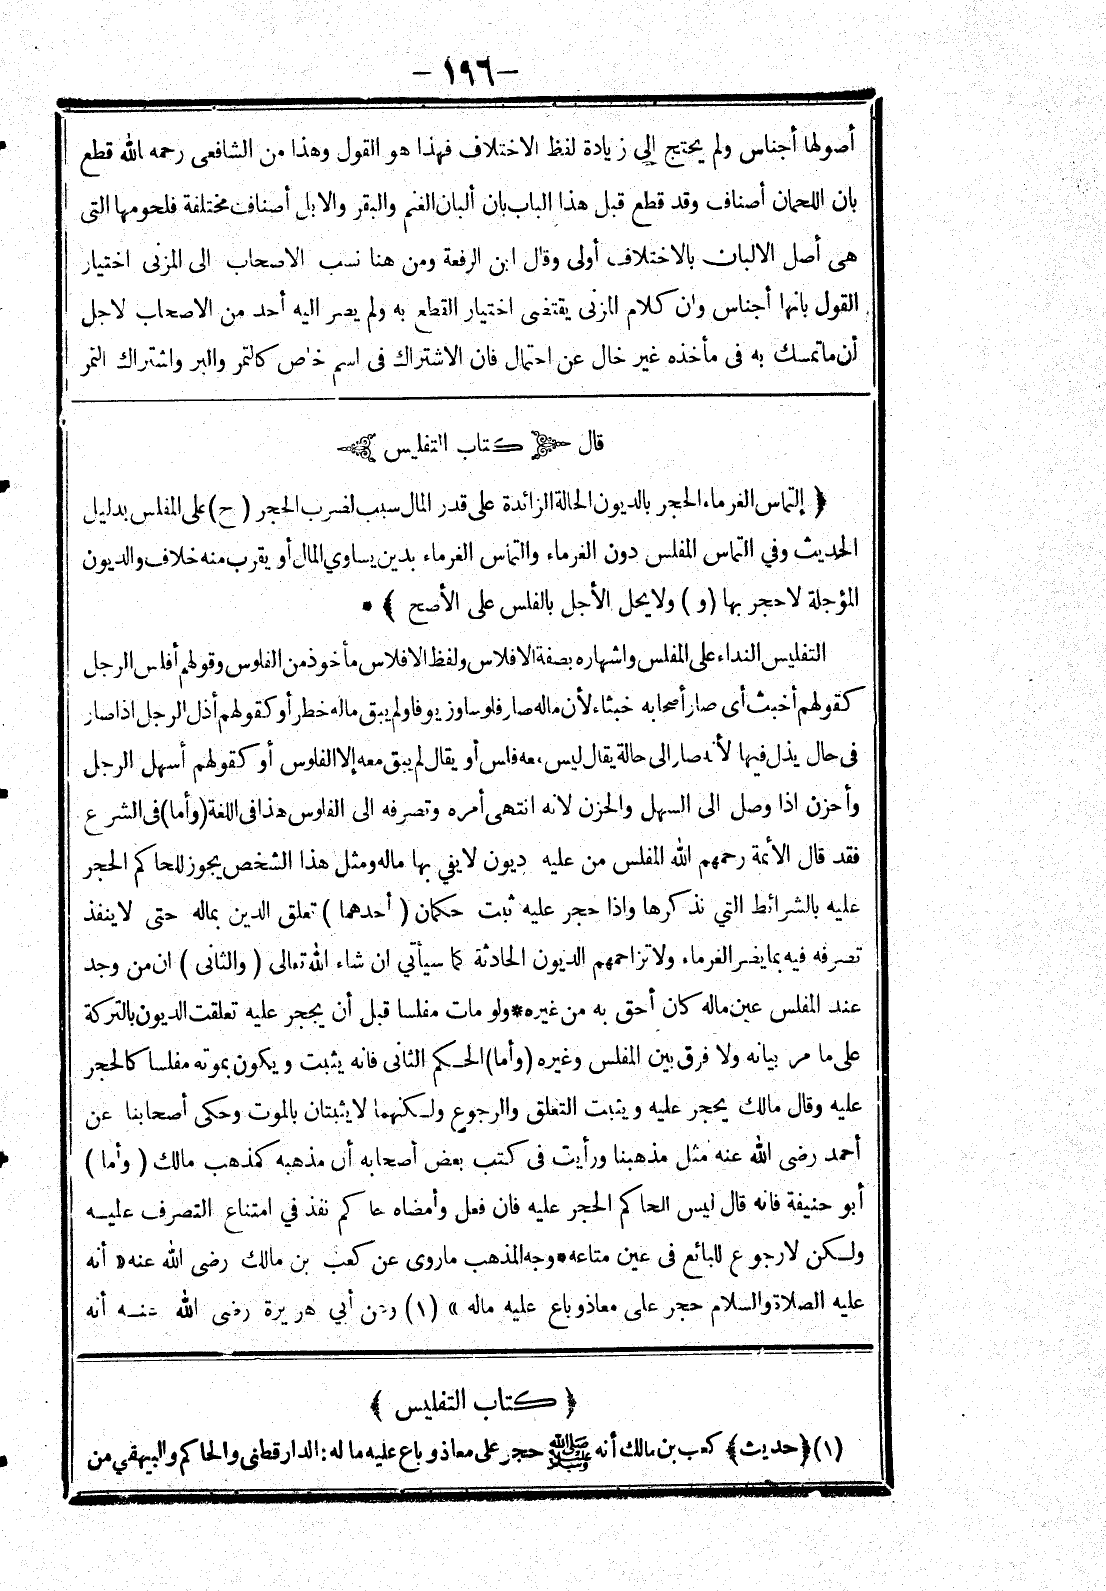 -١٩٦-
أصولها أجناس ولم يحتج إلي زيادة لفظ الاختلاف فهذا هو القول وهذا من الشافعى رحمه الله قطع
بان اللحمان أصناف وقد قطع قبل هذا الباب بان ألبان الغنم والبقر والابل أصناف مختلفة فلحومها التى
هى أصل الالبان بالاختلاف أولى وقال ابن الرفعة ومن هنا نسب الاصحاب الى المزنى اختيار
القول بانها أجناس وان كلام المزنى يقتضى اختيار القطع به ولم يصر اليه أحد من الاصحاب لاجل
أن ماتمسك به فى مأخذه غير خال عن احتمال فان الاشتراك فى اسم خاص كالتمر والبر واشتراك التمر
قال ﴿ كتاب التفليس ﴾
﴿ إلتماس الغرماء الحجر بالديون الحالة الزائدة على قدر المال سبب لضرب الحجر (ح) على المفلس بدليل
الحديث وفي التماس المفلس دون الغرماء والتماس الغرماء بدين يساوي المال أو يقرب منه خلاف والديون
المؤجلة لا حجر بها (و) ولا يحل الأجل بالفلس على الأصح ﴾ *
التفليس النداء على المفلس واشهاره بصفة الافلاس ولفظ الافلاس مأخوذ من الفلوس وقولهم أفلس الرجل
كقولهم أخبث أى صار أصحابه خبثاء لأن ماله صار فلوسا وزيوفا ولم يبق ماله خطر أو كقولهم أذل الرجل اذا صار
فى حال يذل فيها لأنه صار الى حالة يقال ليس معه فلس أو يقال لم يبق معه إلا الفلوس أو كقولهم أسهل الرجل
وأحزن اذا وصل الى السهل والحزن لانه انتهى أمره وتصرفه الى الفلوس هذا فى اللغة (وأما) فى الشرع
فقد قال الأئمة رحمهم الله المفلس من عليه ديون لا يفي بها ماله ومثل هذا الشخص يجوز للحاكم الحجر
عليه بالشرائط التي نذكرها واذا حجر عليه ثبت حكمان (أحدهما) تعلق الدين بماله حتى لا ينفذ
تصرفه فيه بما يضر الغرماء ولا تزاحمهم الديون الحادثة كما سيأتي ان شاء الله تعالى (والثانى) ان من وجد
عند المفلس عين ماله كان أحق به من غيره * ولو مات مفلسا قبل أن يحجر عليه تعلقت الديون بالتركة
على ما مر بيانه ولا فرق بين المفلس وغيره (وأما) الحكم الثانى فانه يثبت ويكون بموته مفلسا كالحجر
عليه وقال مالك يحجر عليه ويثبت التعلق والرجوع ولكنهما لا يثبتان بالموت وحكى أصحابنا عن
أحمد رضى الله عنه مثل مذهبنا ورأيت فى كتب بعض أصحابه أن مذهبه كمذهب مالك (وأما)
أبو حنيفة فانه قال ليس الحاكم الحجر عليه فان فعل وأمضاه حاكم نفذ في امتناع التصرف عليه
ولكن لا رجوع للبائع فى عين متاعه * وجه المذهب ماروى عن كعب بن مالك رضى الله عنه « أنه
عليه الصلاة والسلام حجر على معاذ وباع عليه ماله » (١) وعن أبي هريرة رضى الله عنه أنه
﴿ كتاب التفليس ﴾
(١) ﴿حديث﴾ كعب بن مالك أنه ﷺ حجر على معاذ وباع عليه ماله : الدارقطنى والحاكم والبيهقي من